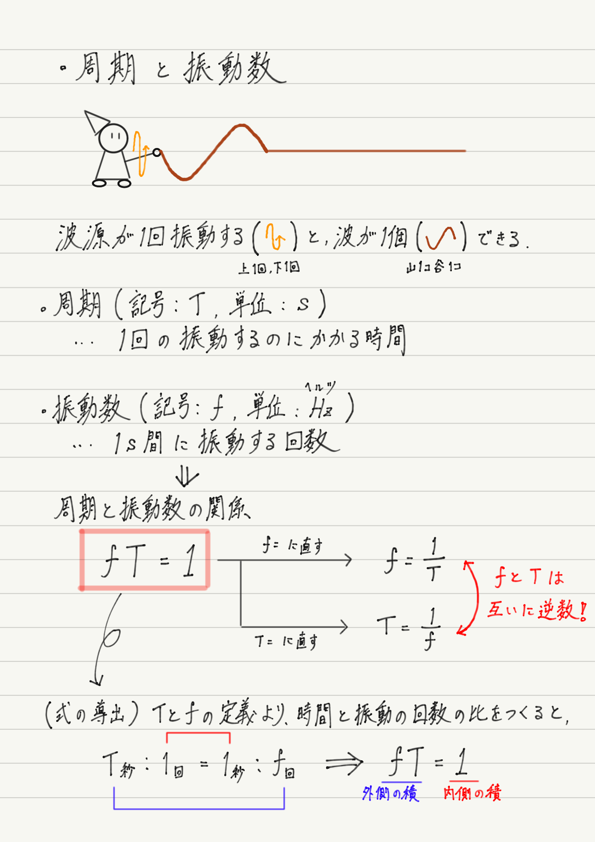 ・周期と振動数
波源が1回振動する( )と,波が1個( )できる.
上1回,下1回
山1コ谷1コ
・周期(記号:T,単位:s)
… 1回の振動するのにかかる時間
・振動数(記号:f,単位:Hz)
ヘルツ
… 1s間に振動する回数
⇓
周期と振動数の関係
fT=1
f=に直す
f=1/T
T=に直す
T=1/f
fとTは
互いに逆数!
(式の導出)Tとfの定義より,時間と振動の回数の比をつくると,
T秒:1回=1秒:f回 ⇒ fT=1
外側の積 内側の積